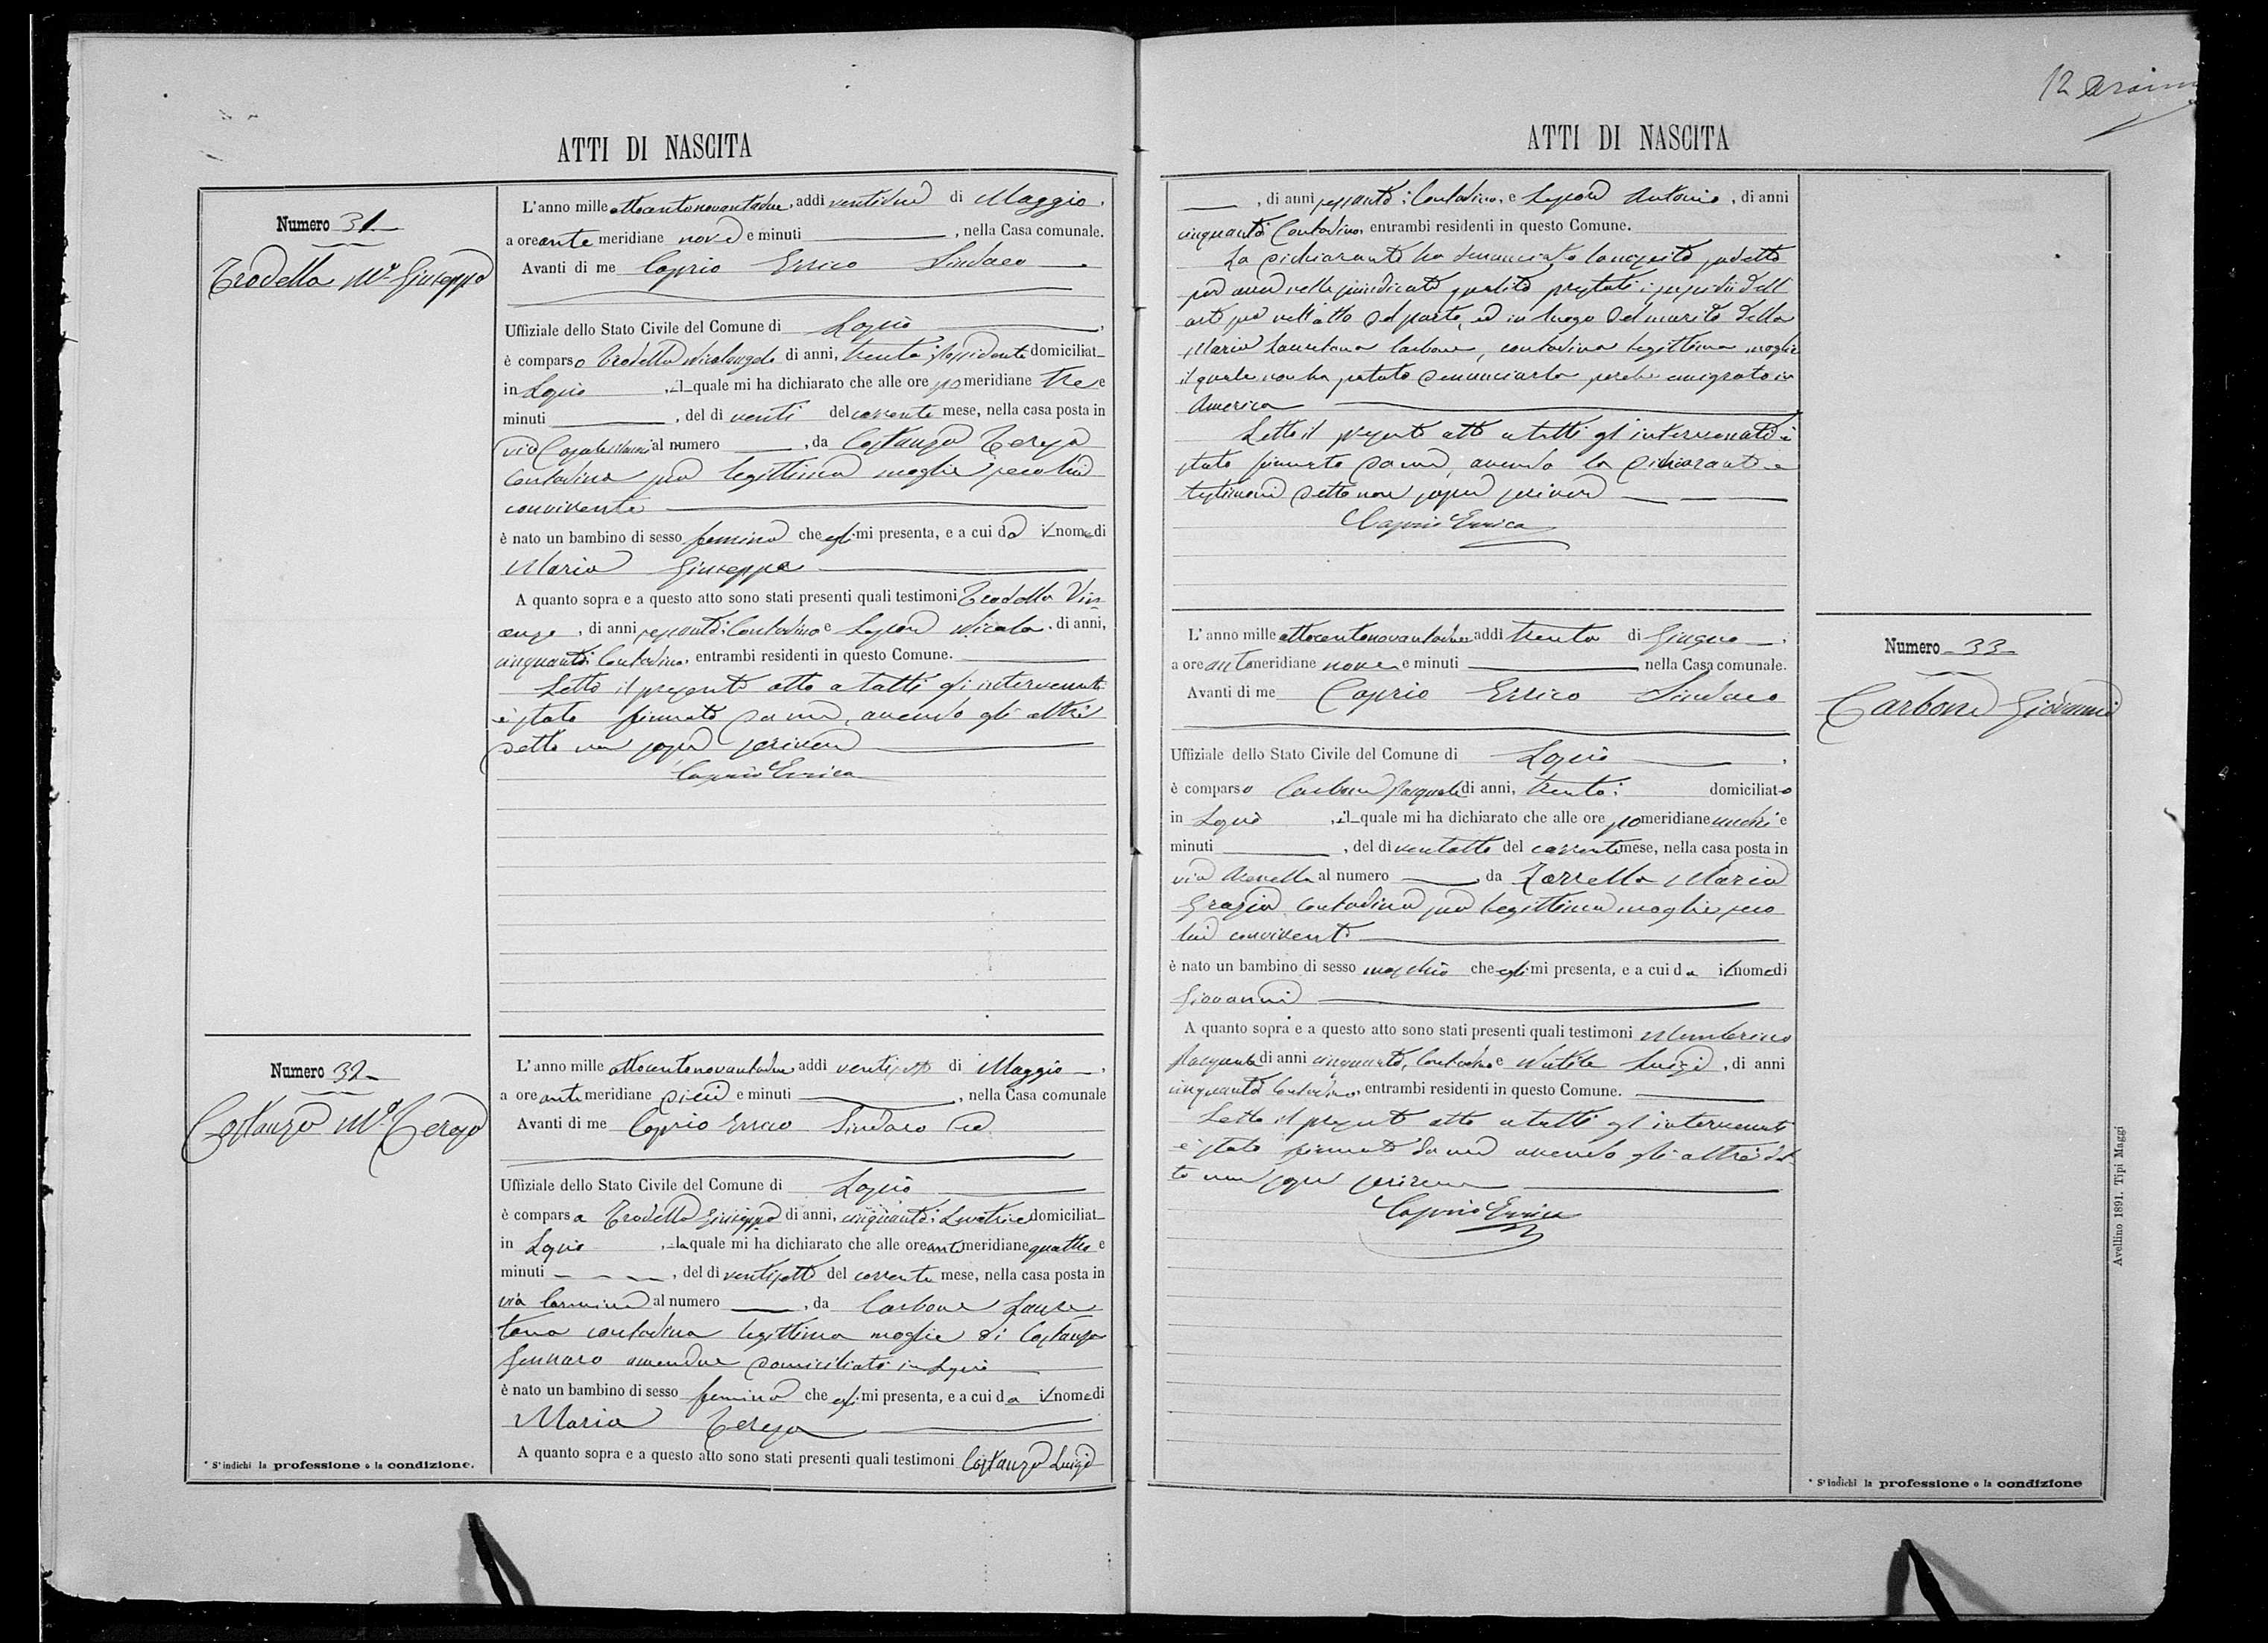 12
ATTI DI NASCITA
Numero 31
Trodella Mª Giuseppa
L'anno mille ottocentonovantadue, addì ventidue di Maggio,
a ore ante meridiane nove e minuti ———, nella Casa comunale.
Avanti di me Caprio Errico Sindaco
Uffiziale dello Stato Civile del Comune di Lapio,
è comparso Trodella Nicolangelo di anni, trenta possidente domiciliat_
in Lapio, il quale mi ha dichiarato che alle ore pomeridiane tre e
minuti ———, del dì venti del corrente mese, nella casa posta in
via al numero ———, da Costanza Teresa
Contadina sua legittima moglie seco lui
convivente
è nato un bambino di sesso femina che egli mi presenta, e a cui dà il nome di
Maria Giuseppa
A quanto sopra e a questo atto sono stati presenti quali testimoni Trodella Vin
cenzo, di anni sessanta, Contadino e Lepore Nicola, di anni,
cinquanta Contadino, entrambi residenti in questo Comune.
Letto il presente atto a tutti gli intervenuti
è stato firmato da me, avendo gli altri
detto non saper scrivere
Caprio Errico
Numero 32
Costanza Mª Teresa
L'anno mille ottocentonovantadue addì ventisette di Maggio,
a ore ante meridiane dieci e minuti ———, nella Casa comunale
Avanti di me Caprio Errico Sindaco
Uffiziale dello Stato Civile del Comune di Lapio
è comparsa Trodella Giuseppa di anni, cinquanta, Levatrice domiciliat_
in Lapio, la quale mi ha dichiarato che alle ore antimeridiane quattro e
minuti ———, del dì ventisette del corrente mese, nella casa posta in
via Carmine al numero ———, da Carbone Laure
tana contadina legittima moglie di Costanza
Gennaro amendue domiciliati in Lapio
è nato un bambino di sesso femina che essa mi presenta, e a cui dà il nome di
Maria Teresa
A quanto sopra e a questo atto sono stati presenti quali testimoni Costanza Luigi
* S'indichi la professione o la condizione.
ATTI DI NASCITA
———, di anni sessanta, Contadino, e Lepore Antonio, di anni
cinquanta Contadino, entrambi residenti in questo Comune.
La dichiarante ha denunciato la nascita sudetta
per aver nella suindicata qualità prestati i sussidii dell
arte sua nell'atto del parto, ed in luogo del marito della
Maria Lauretana Carbone, contadina legittima moglie
il quale non ha potuto denunciarla perchè emigrato in
America
Letto il presente atto a tutti gl'intervenuti è
stato firmato da me, avendo la dichiarante e
testimoni detto non saper scrivere
Caprio Errico
Numero 33
Carbone Giovanni
L'anno mille ottocentonovantadue addì trenta di Giugno,
a ore antimeridiane nove e minuti ——— nella Casa comunale.
Avanti di me Caprio Errico Sindaco
Uffiziale dello Stato Civile del Comune di Lapio,
è comparso Carbone Pasquale di anni, trenta, domiciliato
in Lapio, il quale mi ha dichiarato che alle ore pomeridiane undici e
minuti ———, del dì ventotto del corrente mese, nella casa posta in
via al numero ———, da Zarrella Maria
Grazia contadina sua legittima moglie seco
lui convivente
è nato un bambino di sesso maschio che egli mi presenta, e a cui dà il nome di
Giovanni
A quanto sopra e a questo atto sono stati presenti quali testimoni
Pasquale di anni cinquanta, Contadino e Luigi, di anni
cinquanta Contadino, entrambi residenti in questo Comune.
Letto il presente atto a tutti gl'intervenuti
è stato firmato da me avendo gli altri det
to non saper scrivere
Caprio Errico
* S'indichi la professione o la condizione
Avellino 1891. Tipi Maggi